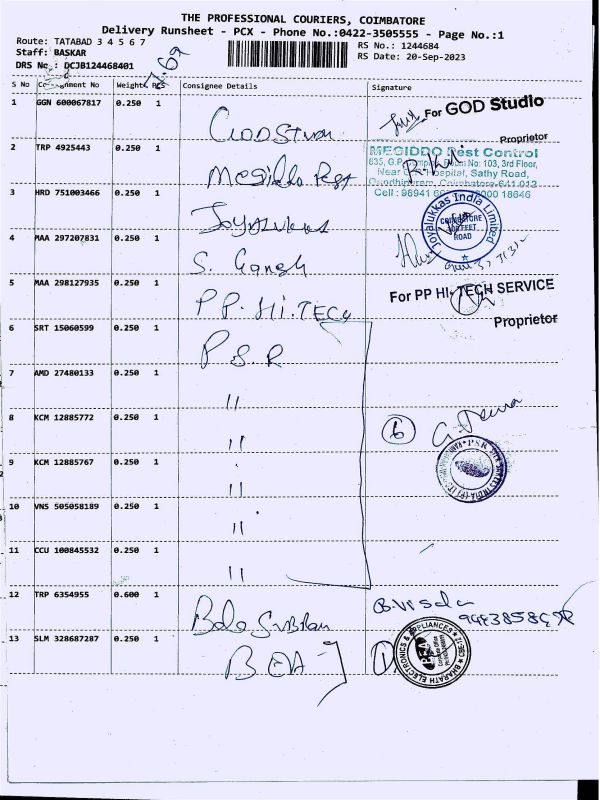 THE PROFESSIONAL COURIERS, COIMBATORE
Delivery Runsheet - PCX - Phone No.:0422-3505555 - Page No.:1
Route: TATABAD 3 4 5 6 7
RS No.: 1244684
Staff: BASKAR
RS Date: 20-Sep-2023
DRS No : DCJB124468401
S No Consignment No Weight PCS Consignee Details Signature
1 GGN 600067817 0.250 1
For GOD Studio
Proprietor
2 TRP 4925443 0.250 1 Megiddo Pest
MEGIDDO Pest Control
635, G.P. Room No: 103, 3rd Floor,
Near Hospital, Sathy Road,
Coimbatore-641 012
Cell : 98941 18646
3 HRD 751003466 0.250 1 Joyalukkas
Joyalukkas India Limited
COIMBATORE
100 FEET
ROAD
4 MAA 297207831 0.250 1 S. Ganesh
5 MAA 298127935 0.250 1 PP. Hi. TECH
For PP HI-TECH SERVICE
Proprietor
6 SRT 15060599 0.250 1 P S R
7 AMD 27480133 0.250 1 "
8 KCM 12885772 0.250 1 "
6
9 KCM 12885767 0.250 1 "
PSR
10 VNS 505058189 0.250 1 "
11 CCU 100845532 0.250 1 "
12 TRP 6354955 0.600 1
13 SLM 328687287 0.250 1 BEA
BHARATH ELECTRONICS & APPLIANCES
BEA